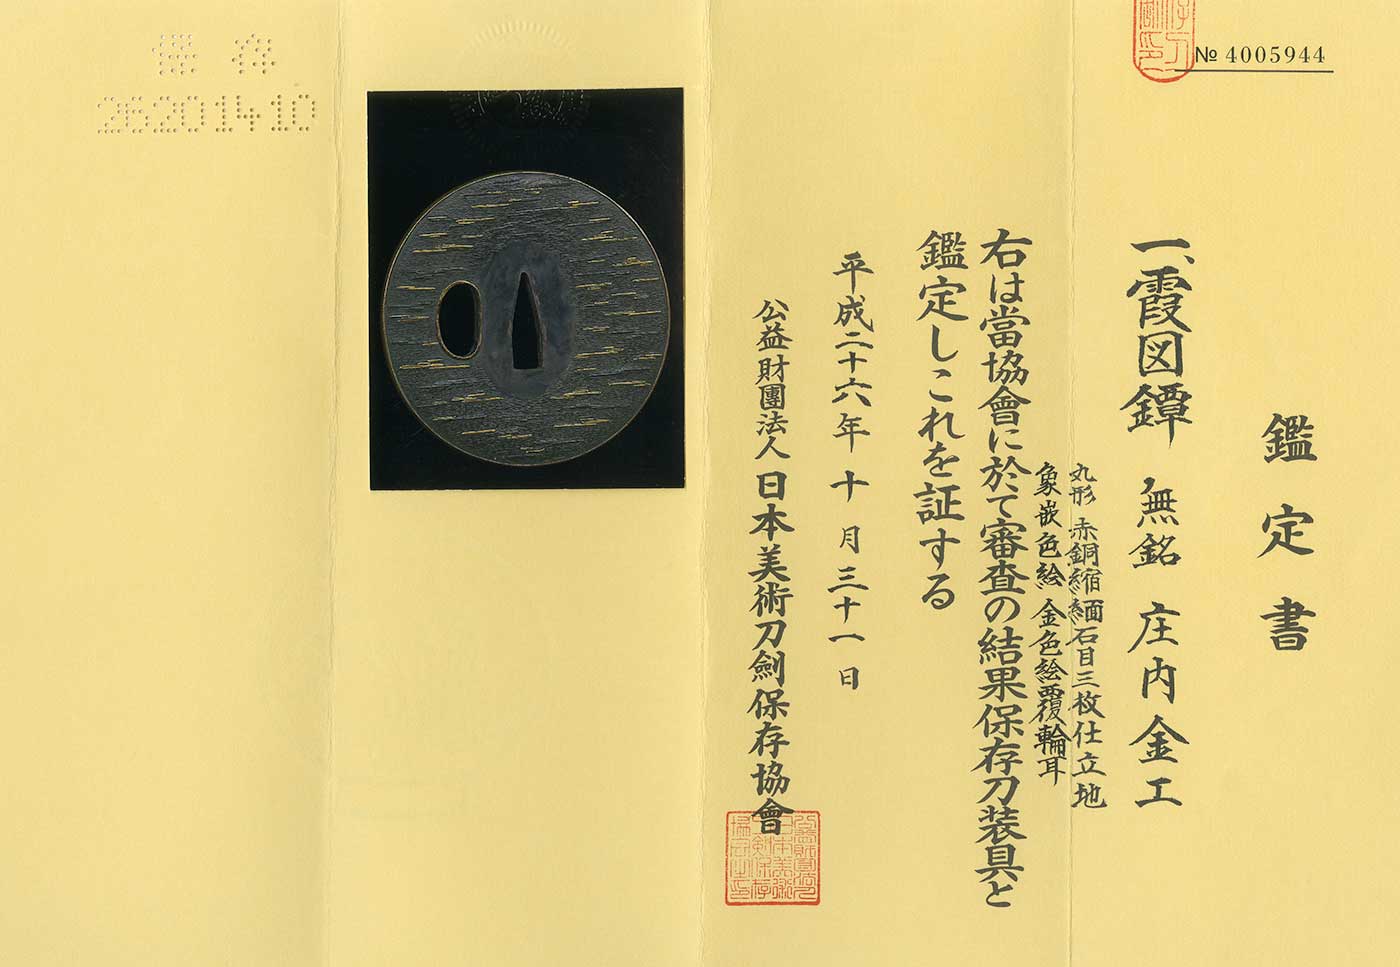 № 4005944
鑑定書
一、霞図鐔 無銘 庄内金工
丸形 赤銅縮緬石目三枚仕立地
象嵌色絵 金色絵覆輪耳
右は當協會に於て審査の結果保存刀装具と
鑑定しこれを証する
平成二十六年十月三十一日
公益財團法人 日本美術刀劍保存協會
保存
26201410